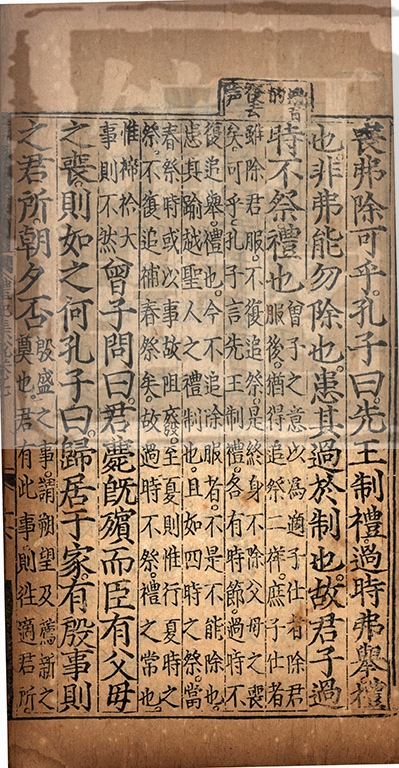 喪弗除可乎孔子曰先王制禮過時弗舉禮
也非弗能勿除也患其過於制也故君子過
時不祭禮也
曾子之意以為適子仕者除君
服後猶得追祭二祥庶子仕者
雖除君服不復追祭是終身不除父母之喪
矣可乎孔子言先王制禮各有時節過時不
復追舉禮也今不追除服者不是不能除也
患其踰越聖人之禮制也且如四時之祭當
春祭時或以事故阻廢至夏則惟行夏時之
祭不復追補春祭矣故過時不祭禮之常也
惟禘祫大
事則不然
曾子問曰君薨旣殯而臣有父母
之喪則如之何孔子曰歸居于家有殷事則
之君所朝夕否
殷盛之事謂朔望及薦新之
奠也君有此事則往適君所